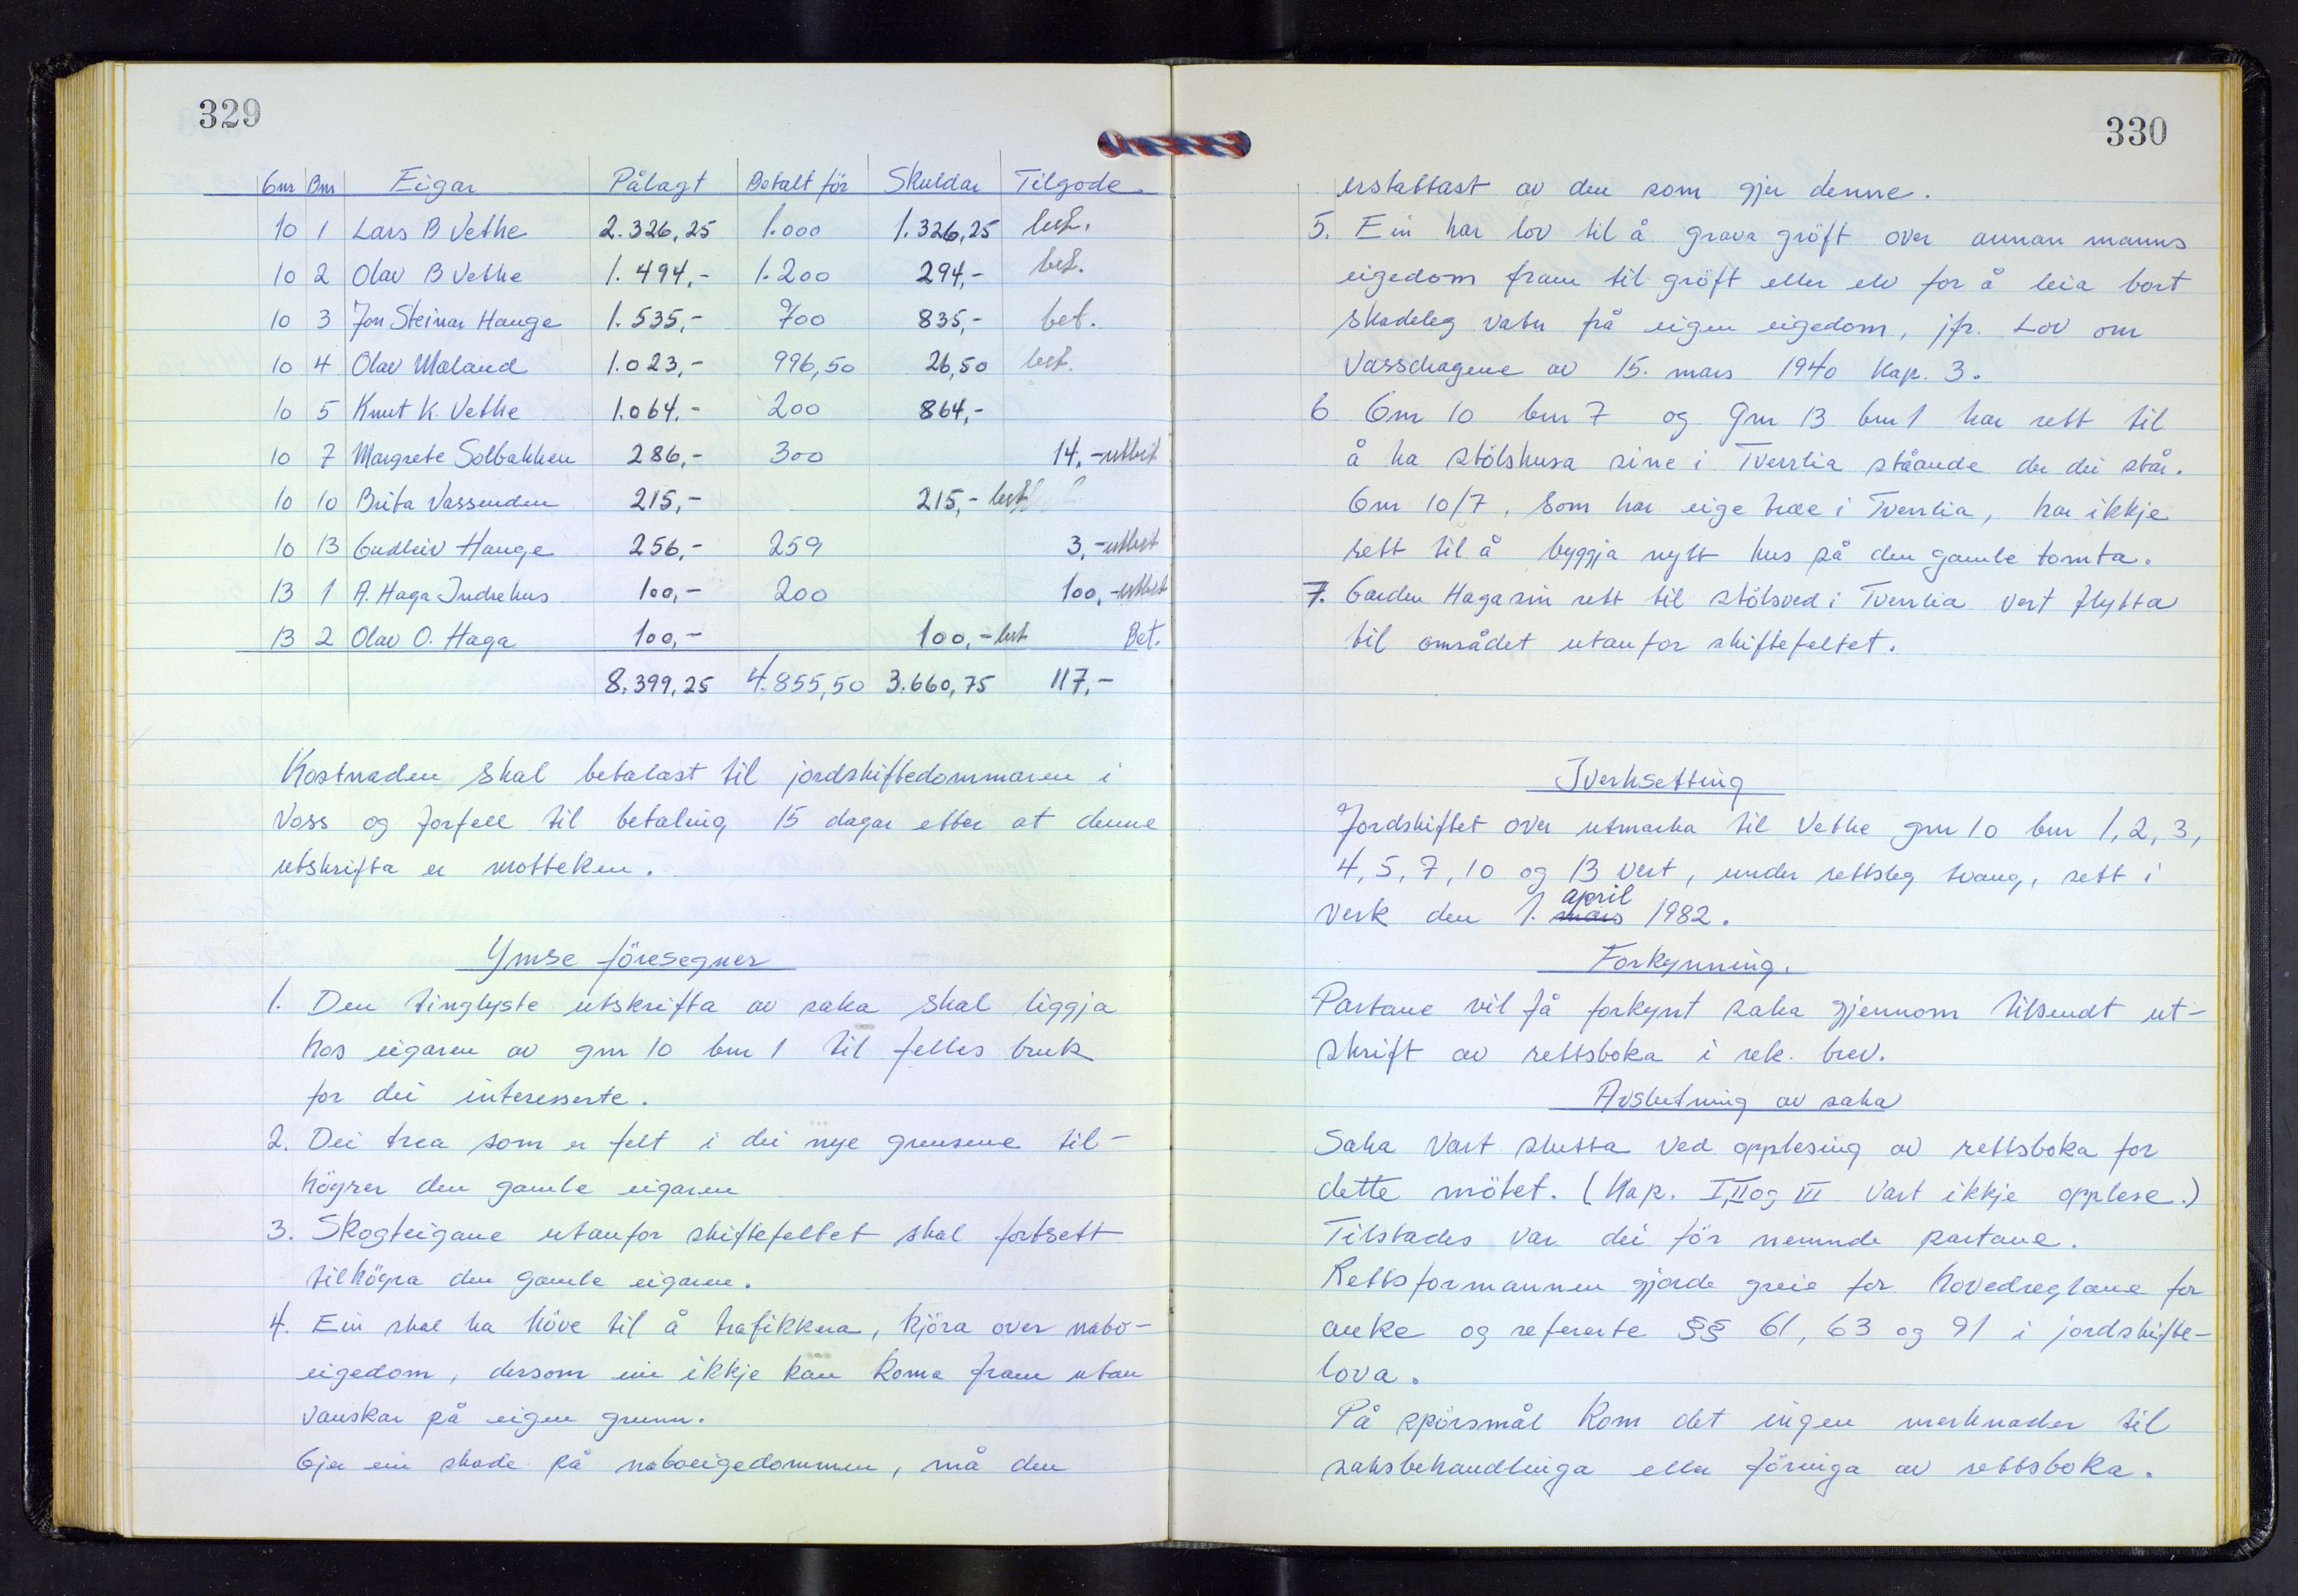 329
Gnr Bnr Eigar Pålagt Betalt før Skuldar Tilgode.
10 1 Lars B Vethe 2.326,25 1.000 1.326,25 bet.
10 2 Olav B Vethe 1.494,- 1.200 294,- bet.
10 3 Jon Steinar Hauge 1.535,- 700 835,- bet.
10 4 Olav Mæland 1.023,- 996,50 26,50 bet.
10 5 Knut K. Vethe 1.064,- 200 864,-
10 7 Margrete Solbakken 286,- 300 14,- utbet
10 10 Brita Vassenden 215,- 215,- bet
10 13 Gudleiv Hauge 256,- 259 3,- utbet
13 1 A. Haga Indrehus 100,- 200 100,- utbet
13 2 Olav O. Haga 100,- 100,- bet Bet.
8.399,25 4.855,50 3.660,75 117,-
Kostnaden skal betalast til jordskiftedommaren i
Voss og forfell til betaling 15 dagar etter at denne
utskrifta er motteken.
Ymse föresegner
1. Den tinglyste utskrifta av saka skal liggja
hos eigaren av gnr 10 bnr 1 til felles bruk
for dei interesserte.
2. Dei trea som er felt i dei nye grensene til-
höyrer den gamle eigaren
3. Skogteigane utanfor skiftefeltet skal fortsett
tilhöyra den gamle eigaren.
4. Ein skal ha höve til å trafikkera, kjöra over nabo-
eigedom, dersom ein ikkje kan koma fram utan
vanskar på eigen grunn.
Gjer ein skade på naboeigedommen, må den
330
erstattast av den som gjer denne.
5. Ein har lov til å grava gröft over annan manns
eigedom fram til gröft eller elv for å leia bort
skadeleg vatn frå eigen eigedom, jfr. Lov om
Vassdragene av 15. mars 1940 kap. 3.
6 Gnr 10 bnr 7 og gnr 13 bnr 1 har rett til
å ha stölshusa sine i Tverrlia ståande der dei står.
Gnr 10/7, som har eige træe i Tverrlia, har ikkje
rett til å byggja nytt hus på den gamle tomta.
7. Garden Haga sin rett til stölsved i Tverrlia vert flytta
til området utanfor skiftefeltet.
Iverksetting
Jordskiftet over utmarka til Vethe gnr 10 bnr 1, 2, 3,
4, 5, 7, 10 og 13 vert, under rettsleg tvang, sett i
april
verk den 1. mars 1982.
Forkynning.
Partane vil få forkynt saka gjennom tilsendt ut-
skrift av rettsboka i rek. brev.
Avslutning av saka
Saka vart slutta ved opplesing av rettsboka for
dette mötet. (Kap. I, II og III vart ikkje opplese.)
Tilstades var dei för nemnde partane.
Rettsformannen gjorde greie for hovedreglane for
anke og refererte §§ 61, 63 og 91 i jordskifte-
lova.
På spörsmål kom det ingen merknader til
saksbehandlinga eller föringa av rettsboka.